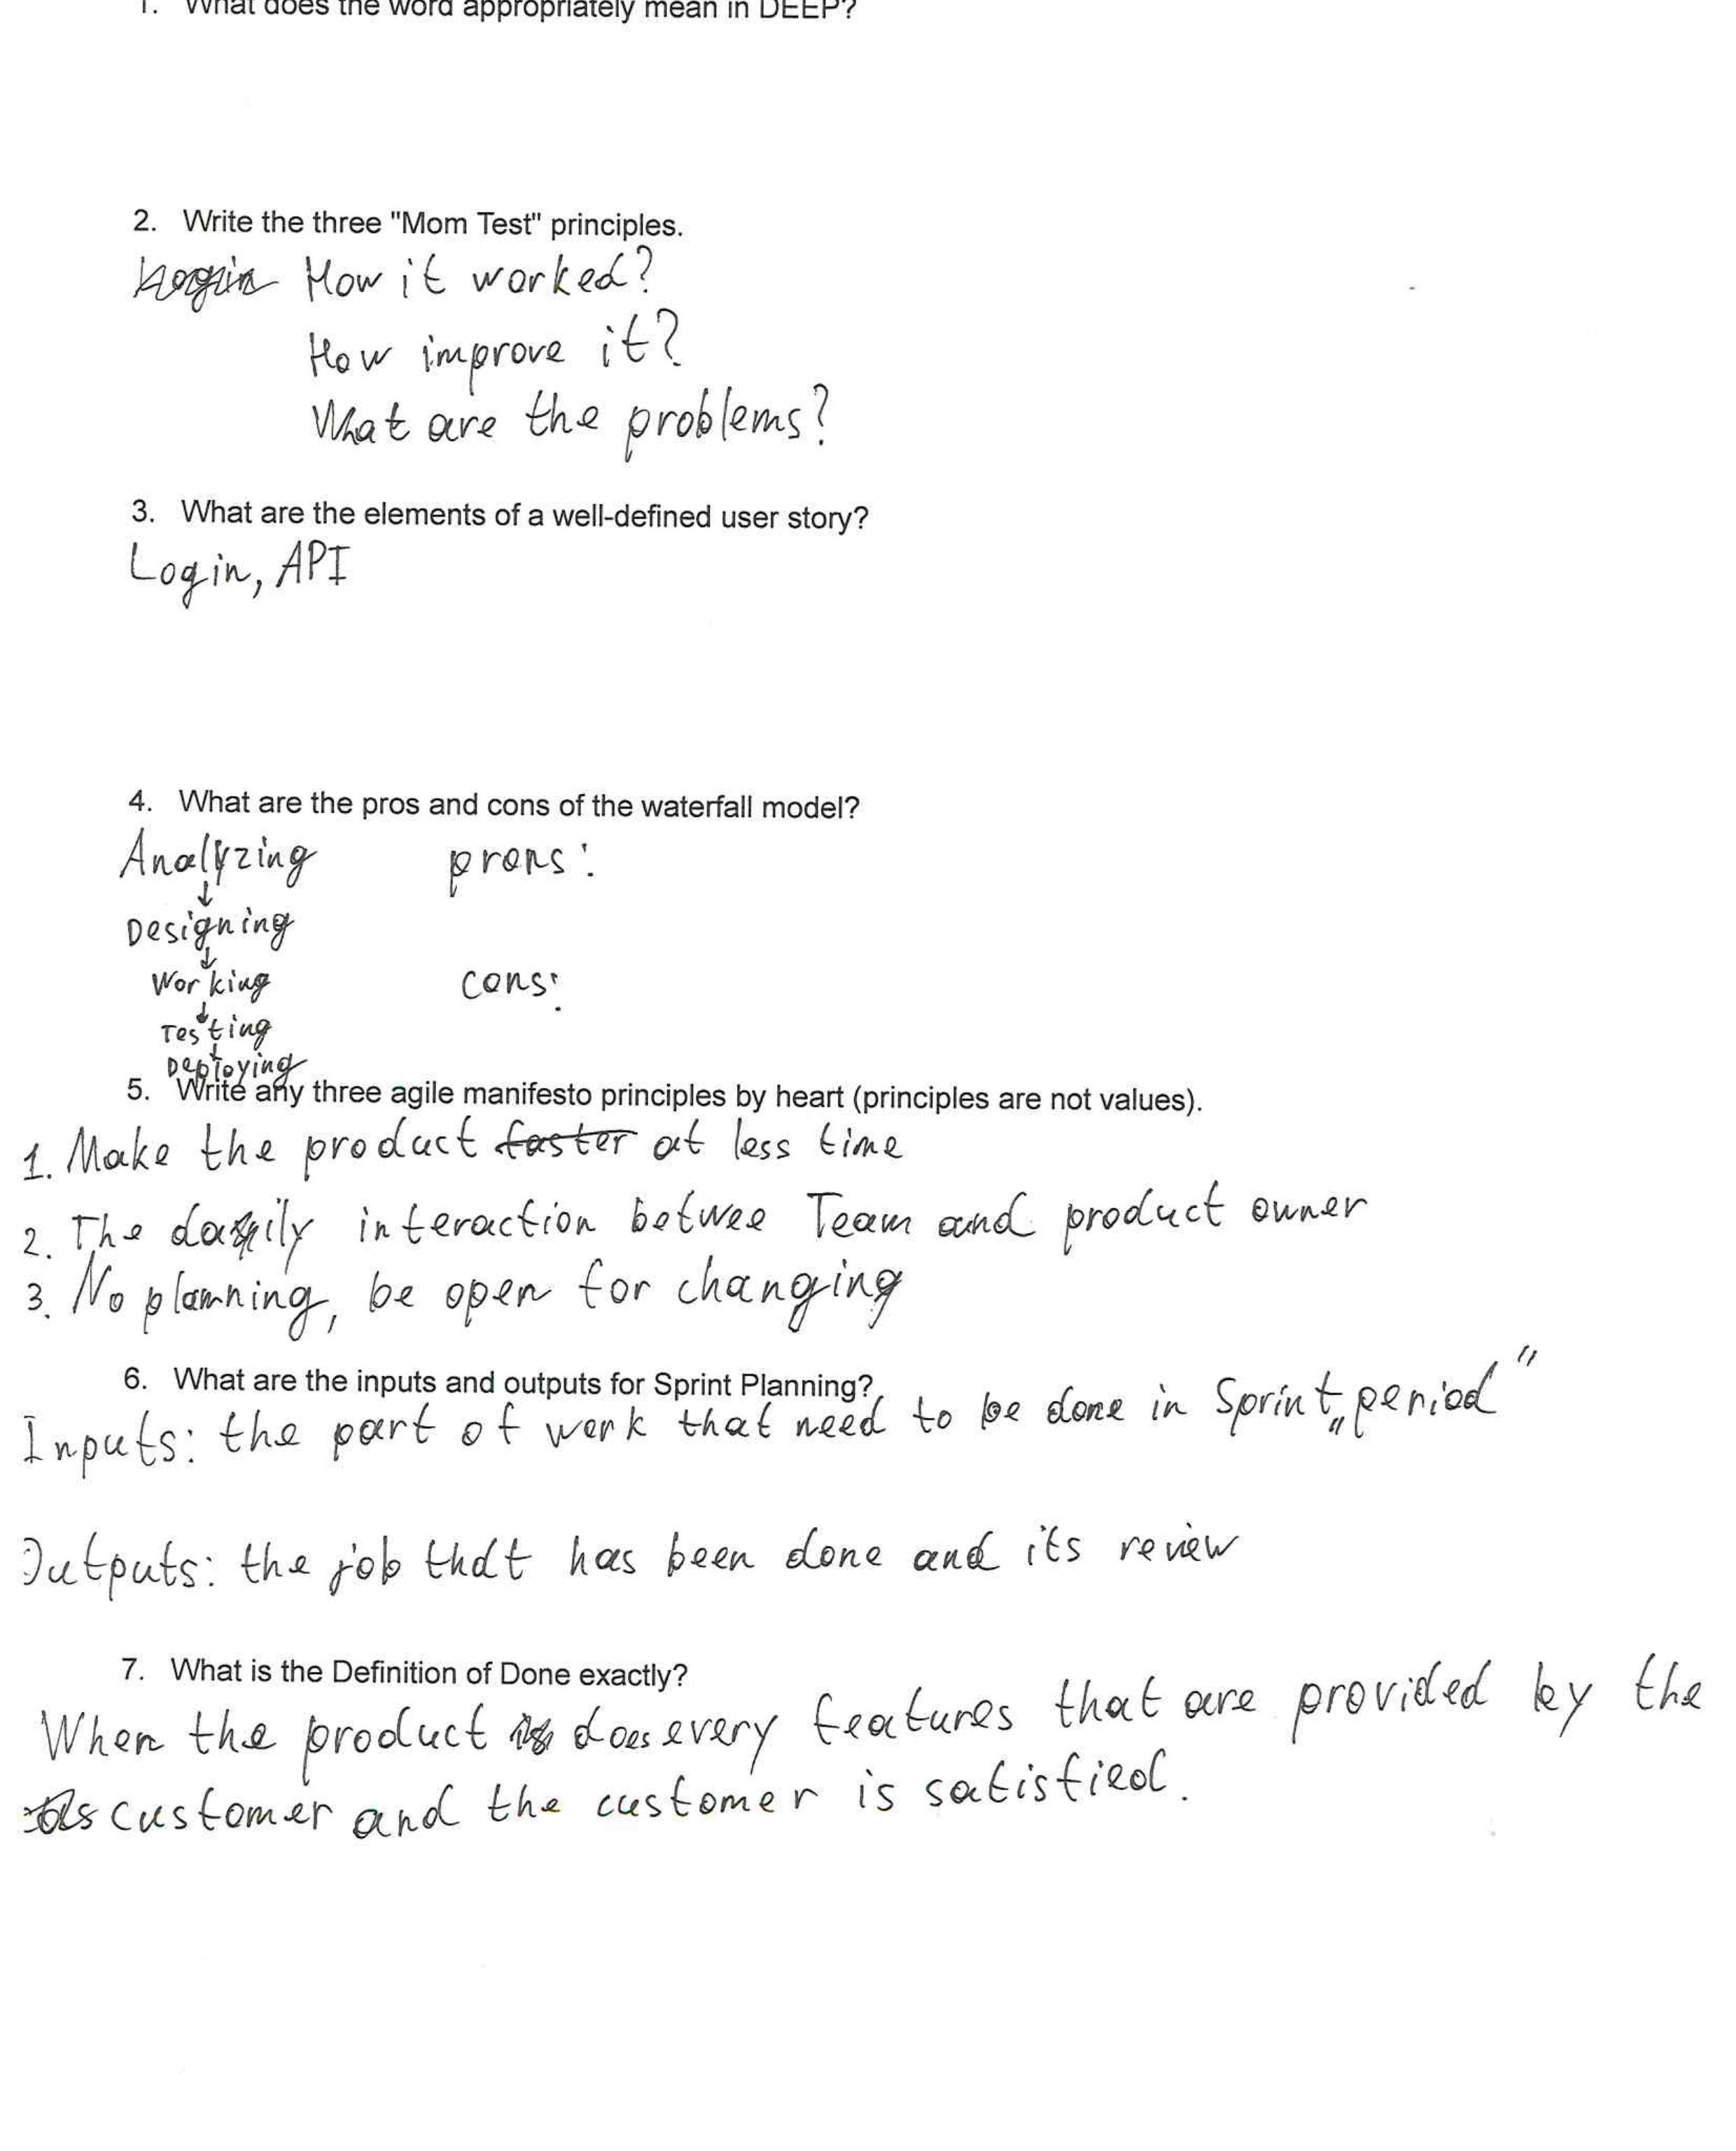 1. What does the word appropriately mean in DEEP?
2. Write the three "Mom Test" principles.
Login How it worked?
How improve it?
What are the problems?
3. What are the elements of a well-defined user story?
Login, API
4. What are the pros and cons of the waterfall model?
Analyzing prons:
↓
Designing
↓
Working cons:
↓
Testing
↓
Deploying
5. Write any three agile manifesto principles by heart (principles are not values).
1. Make the product faster at less time
2. The daily interaction betwee Team and product owner
3. No planning, be open for changing
6. What are the inputs and outputs for Sprint Planning?
Inputs: the part of work that need to be done in Sprint „period"
Outputs: the job that has been done and its review
7. What is the Definition of Done exactly?
When the product does every features that are provided by the
customer and the customer is satisfied.